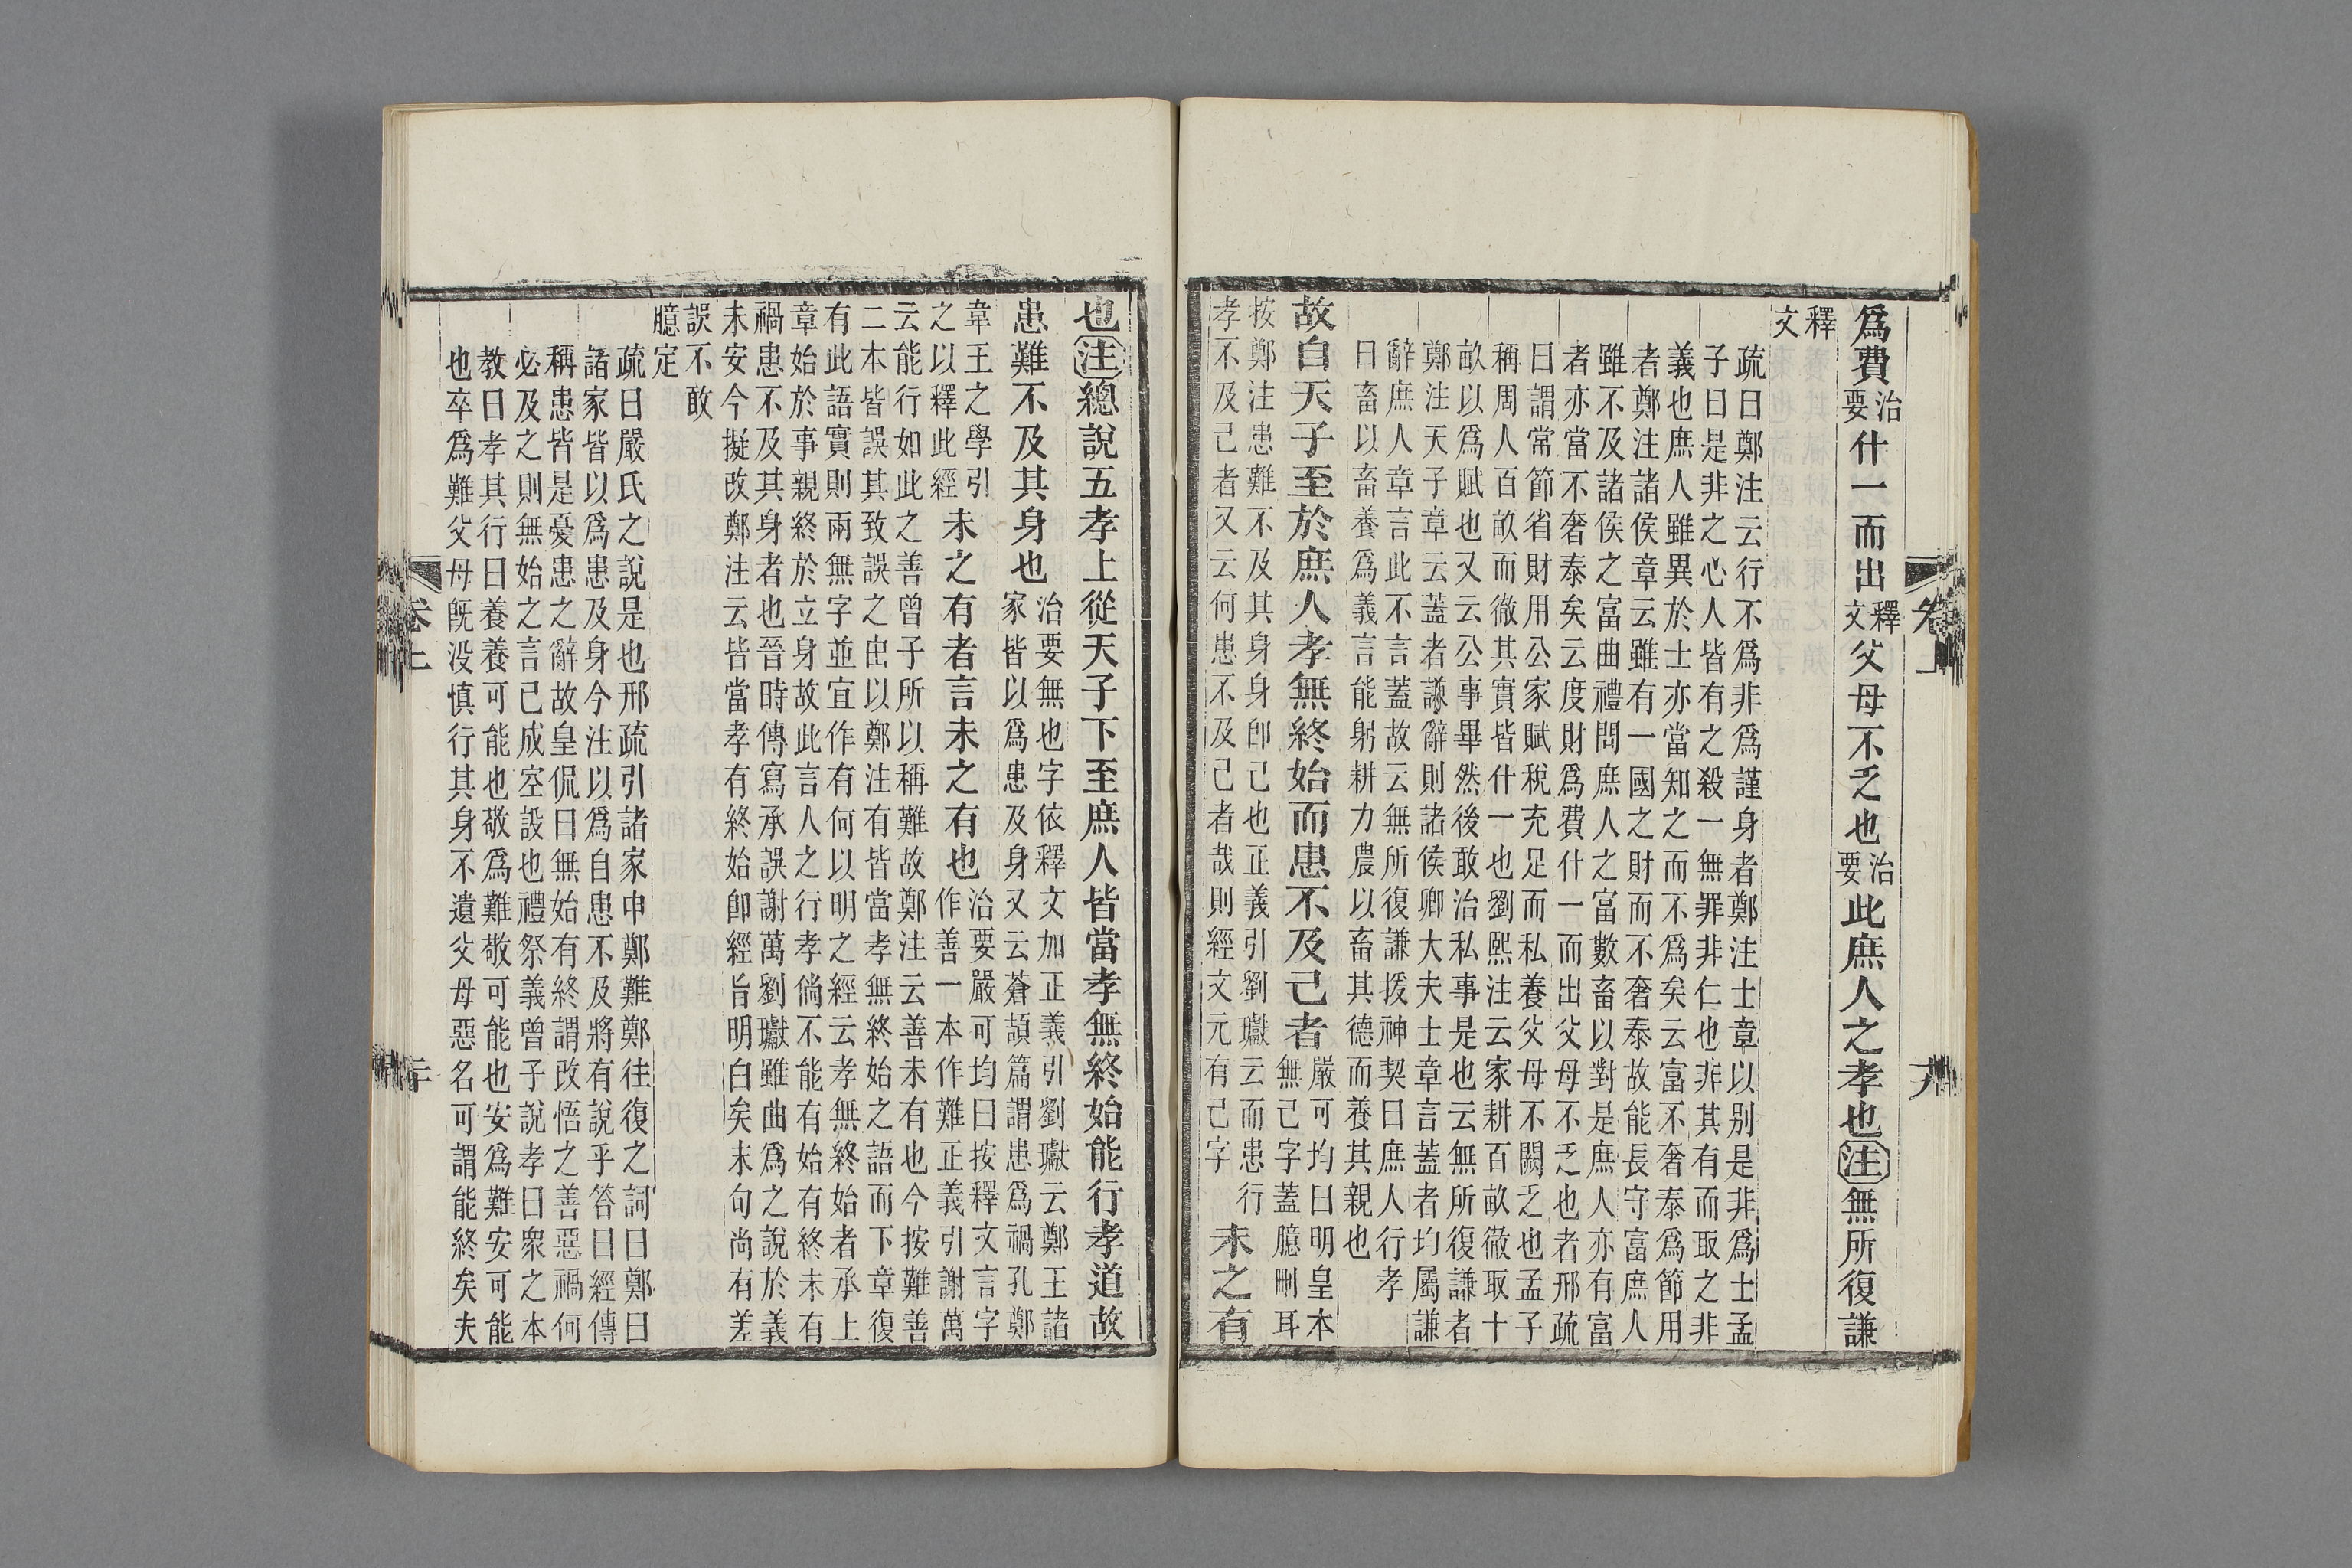 爲費治要什一而出釋文父母不乏也治要此庶人之孝也注無所復謙
釋文
疏曰鄭注云行不爲非爲謹身者鄭注士章以别是非爲士孟
子曰是非之心人皆有之殺一無罪非仁也非其有而取之非
義也庶人雖異於士亦當知之而不爲矣云富不奢泰爲節用
者鄭注諸侯章云雖有一國之財而不奢泰故能長守富庶人
雖不及諸侯之富曲禮問庶人之富數畜以對是庶人亦有富
者亦當不奢泰矣云度財爲費什一而出父母不乏也者邢疏
曰謂常節省財用公家賦稅充足而私養父母不闕乏也孟子
稱周人百畝而徹其實皆什一也劉熙注云家耕百畝徹取十
畝以爲賦也又云公事畢然後敢治私事是也云無所復謙者
鄭注天子章云蓋者謙辭則諸侯卿大夫士章言蓋者均屬謙
辭庶人章言此不言蓋故云無所復謙援神契曰庶人行孝
曰畜以畜養爲義言能躬耕力農以畜其德而養其親也
故自天子至於庶人孝無終始而患不及己者嚴可均曰明皇本無己字蓋臆刪耳
按鄭注患難不及其身身卽己也正義引劉瓛云而患行
孝不及己者又云何患不及己者哉則經文元有己字
未之有
卷上
九
也注總說五孝上從天子下至庶人皆當孝無終始能行孝道故
患難不及其身也治要無也字依釋文加正義引劉瓛云鄭王諸
家皆以爲患及身又云蒼頡篇謂患爲禍孔鄭
韋王之學引
之以釋此經未之有者言未之有也治要嚴可均曰按釋文言字
作善一本作難正義引謝萬
云能行如此之善曾子所以稱難故鄭注云善未有也今按難善
二本皆誤其致誤之由以鄭注有皆當孝無終始之語而下章復
有此語實則兩無字並宜作有何以明之經云孝無終始者承上
章始於事親終於立身故此言人之行孝倘不能有始有終未有
禍患不及其身者也晉時傳寫承誤謝萬劉瓛雖曲爲之說於義
未安今擬改鄭注云皆當孝有終始卽經旨明白矣末句尚有差
誤不敢
臆定
疏曰嚴氏之說是也邢疏引諸家申鄭難鄭往復之詞曰鄭曰
諸家皆以爲患及身今注以爲自患不及將有說乎答曰經傳
稱患皆是憂患之辭故皇侃曰無始有終謂改悟之善惡禍何
必及之則無始之言已成空設也禮祭義曾子說孝曰衆之本
教曰孝其行曰養養可能也敬爲難敬可能也安爲難安可能
也卒爲難父母旣没慎行其身不遺父母惡名可謂能終矣夫
卷上
二十